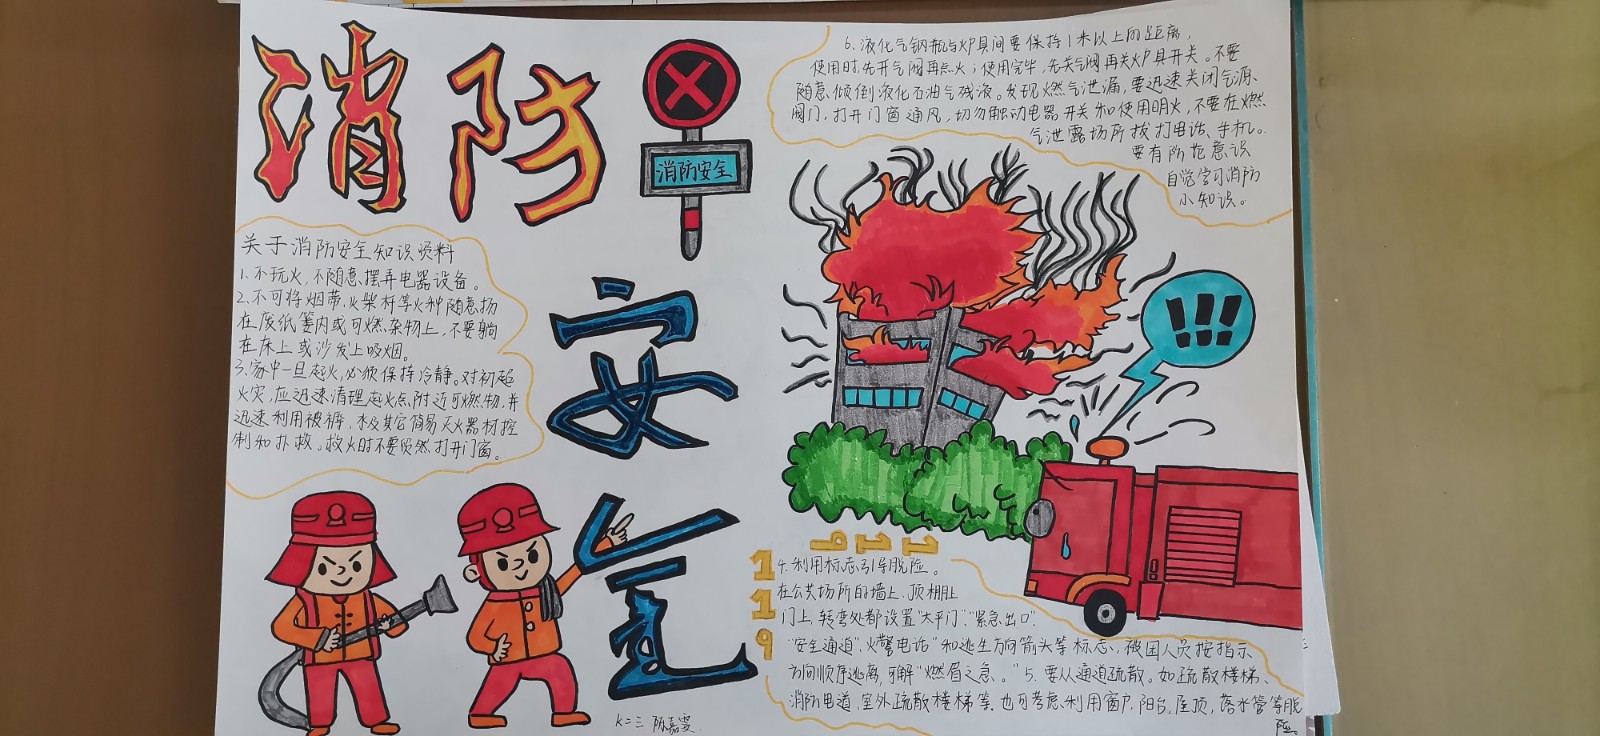 消防
消防安全
安全
关于消防安全知识资料
1、不玩火,不随意摆弄电器设备。
2、不可将烟蒂、火柴杆等火种随意扬
在废纸篓内或可燃杂物上,不要躺
在床上或沙发上吸烟。
3、家中一旦起火,必须保持冷静。对初起
火灾,应迅速清理起火点附近可燃物,并
迅速利用被褥、水及其它简易灭火器材控
制和扑救。救火时不要贸然打开门窗。
6、液化气钢瓶与炉具间要保持1米以上的距离,
使用时,先开气阀再点火;使用完毕,先关气阀再关炉具开关。不要
随意倾倒液化石油气残液。发现燃气泄漏,要迅速关闭气源、
阀门,打开门窗通风,切勿触动电器开关和使用明火,不要在燃
气泄露场所拔打电话、手机。
要有防范意识
自觉学习消防
小知识。
!!!
119
119
4、利用标志引导脱险。
在公共场所的墙上、顶棚上
门上、转弯处都设置“太平门”、“紧急出口”、
“安全通道”、火警电话”和逃生方向箭头等标志,被困人员按指示
方向顺序逃离,可解“燃眉之急。”5、要从通道疏散。如疏散楼梯、
消防电道、室外疏散楼梯等、也可考虑利用窗户、阳台、屋顶,落水管等脱
险。
K二三 陈嘉雯